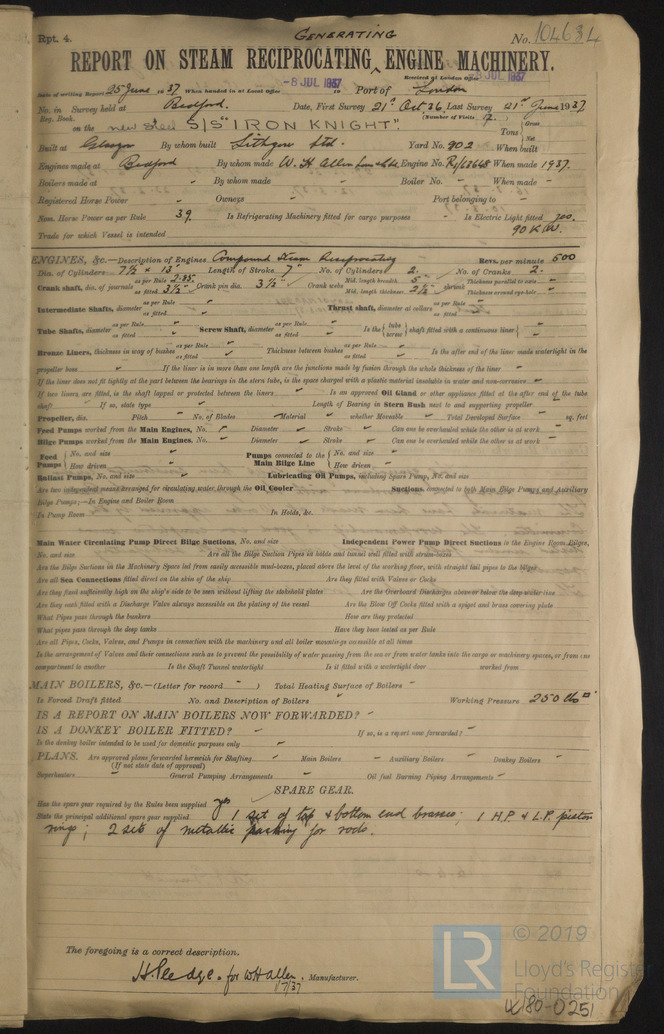 Rpt. 4.
GENERATING
No. 104634
REPORT ON STEAM RECIPROCATING ENGINE MACHINERY.
Received at London Office
-8 JUL 1937
Date of writing Report 25 June 1937 When handed in at Local Office -8 JUL 1937 Port of London
No. in Survey held at Bedford. Date, First Survey 21st Oct. 36 Last Survey 21st June 1937
Reg. Book. (Number of Visits 17.)
on the new steel S/S "IRON KNIGHT". Tons Gross Net
Built at Glasgow By whom built Lithgow Ltd. Yard No. 902 When built
Engines made at Bedford By whom made W. H. Allen Sons & Co. Ltd. Engine No. When made 1937.
Boilers made at - By whom made - Boiler No. - When made -
Registered Horse Power Owners Port belonging to
Nom. Horse Power as per Rule 39. Is Refrigerating Machinery fitted for cargo purposes - Is Electric Light fitted yes.
Trade for which Vessel is intended 90 K.W.
ENGINES, &c.—Description of Engines Compound Steam Reciprocating Revs. per minute 600
Dia. of Cylinders 7½ × 13" Length of Stroke 7" No. of Cylinders 2. No. of Cranks 2.
Crank shaft, dia. of journals as per Rule 2.85 as fitted 3½" Crank pin dia. 3½" Crank webs Mid. length breadth 5" Mid. length thickness 2½" shrunk Thickness parallel to axis Thickness around eye-hole
Intermediate Shafts, diameter as per Rule as fitted Thrust shaft, diameter at collars as per Rule as fitted
Tube Shafts, diameter as per Rule as fitted Screw Shaft, diameter as per Rule as fitted Is the { tube screw } shaft fitted with a continuous liner {
Bronze Liners, thickness in way of bushes as per Rule as fitted Thickness between bushes as per Rule as fitted Is the after end of the liner made watertight in the
propeller boss If the liner is in more than one length are the junctions made by fusion through the whole thickness of the liner
If the liner does not fit tightly at the part between the bearings in the stern tube, is the space charged with a plastic material insoluble in water and non-corrosive
If two liners are fitted, is the shaft lapped or protected between the liners Is an approved Oil Gland or other appliance fitted at the after end of the tube
shaft If so, state type Length of Bearing in Stern Bush next to and supporting propeller
Propeller, dia. Pitch No. of Blades Material whether Moveable Total Developed Surface sq. feet
Feed Pumps worked from the Main Engines, No. Diameter Stroke Can one be overhauled while the other is at work
Bilge Pumps worked from the Main Engines, No. Diameter Stroke Can one be overhauled while the other is at work
Feed Pumps { No. and size How driven Pumps connected to the Main Bilge Line { No. and size How driven
Ballast Pumps, No. and size Lubricating Oil Pumps, including Spare Pump, No. and size
Are two independent means arranged for circulating water through the Oil Cooler Suctions, connected to both Main Bilge Pumps and Auxiliary
Bilge Pumps;—In Engine and Boiler Room
In Pump Room In Holds, &c.
Main Water Circulating Pump Direct Bilge Suctions, No. and size Independent Power Pump Direct Suctions to the Engine Room Bilges,
No. and size Are all the Bilge Suction Pipes in holds and tunnel well fitted with strum-boxes
Are the Bilge Suctions in the Machinery Space led from easily accessible mud-boxes, placed above the level of the working floor, with straight tail pipes to the bilges
Are all Sea Connections fitted direct on the skin of the ship Are they fitted with Valves or Cocks
Are they fixed sufficiently high on the ship's side to be seen without lifting the stokehold plates Are the Overboard Discharges above or below the deep water line
Are they each fitted with a Discharge Valve always accessible on the plating of the vessel Are the Blow Off Cocks fitted with a spigot and brass covering plate
What Pipes pass through the bunkers How are they protected
What pipes pass through the deep tanks Have they been tested as per Rule
Are all Pipes, Cocks, Valves, and Pumps in connection with the machinery and all boiler mountings accessible at all times
Is the arrangement of Valves and their connections such as to prevent the possibility of water passing from the sea or from water tanks into the cargo or machinery spaces, or from one
compartment to another Is the Shaft Tunnel watertight Is it fitted with a watertight door worked from
MAIN BOILERS, &c.—(Letter for record - ) Total Heating Surface of Boilers -
Is Forced Draft fitted No. and Description of Boilers Working Pressure 250 lbs
IS A REPORT ON MAIN BOILERS NOW FORWARDED? -
IS A DONKEY BOILER FITTED? - If so, is a report now forwarded? -
Is the donkey boiler intended to be used for domestic purposes only -
PLANS. Are approved plans forwarded herewith for Shafting Main Boilers Auxiliary Boilers Donkey Boilers
(If not state date of approval)
Superheaters General Pumping Arrangements Oil fuel Burning Piping Arrangements
SPARE GEAR.
Has the spare gear required by the Rules been supplied yes
State the principal additional spare gear supplied 1 set of top & bottom end brasses; 1 H.P. & L.P. piston
rings; 2 sets of metallic packing for rods.
The foregoing is a correct description.
H. Pledge. for W H Allen. Manufacturer.
1/7/37
LR
© 2019
Lloyd's Register
Foundation
W180-0251